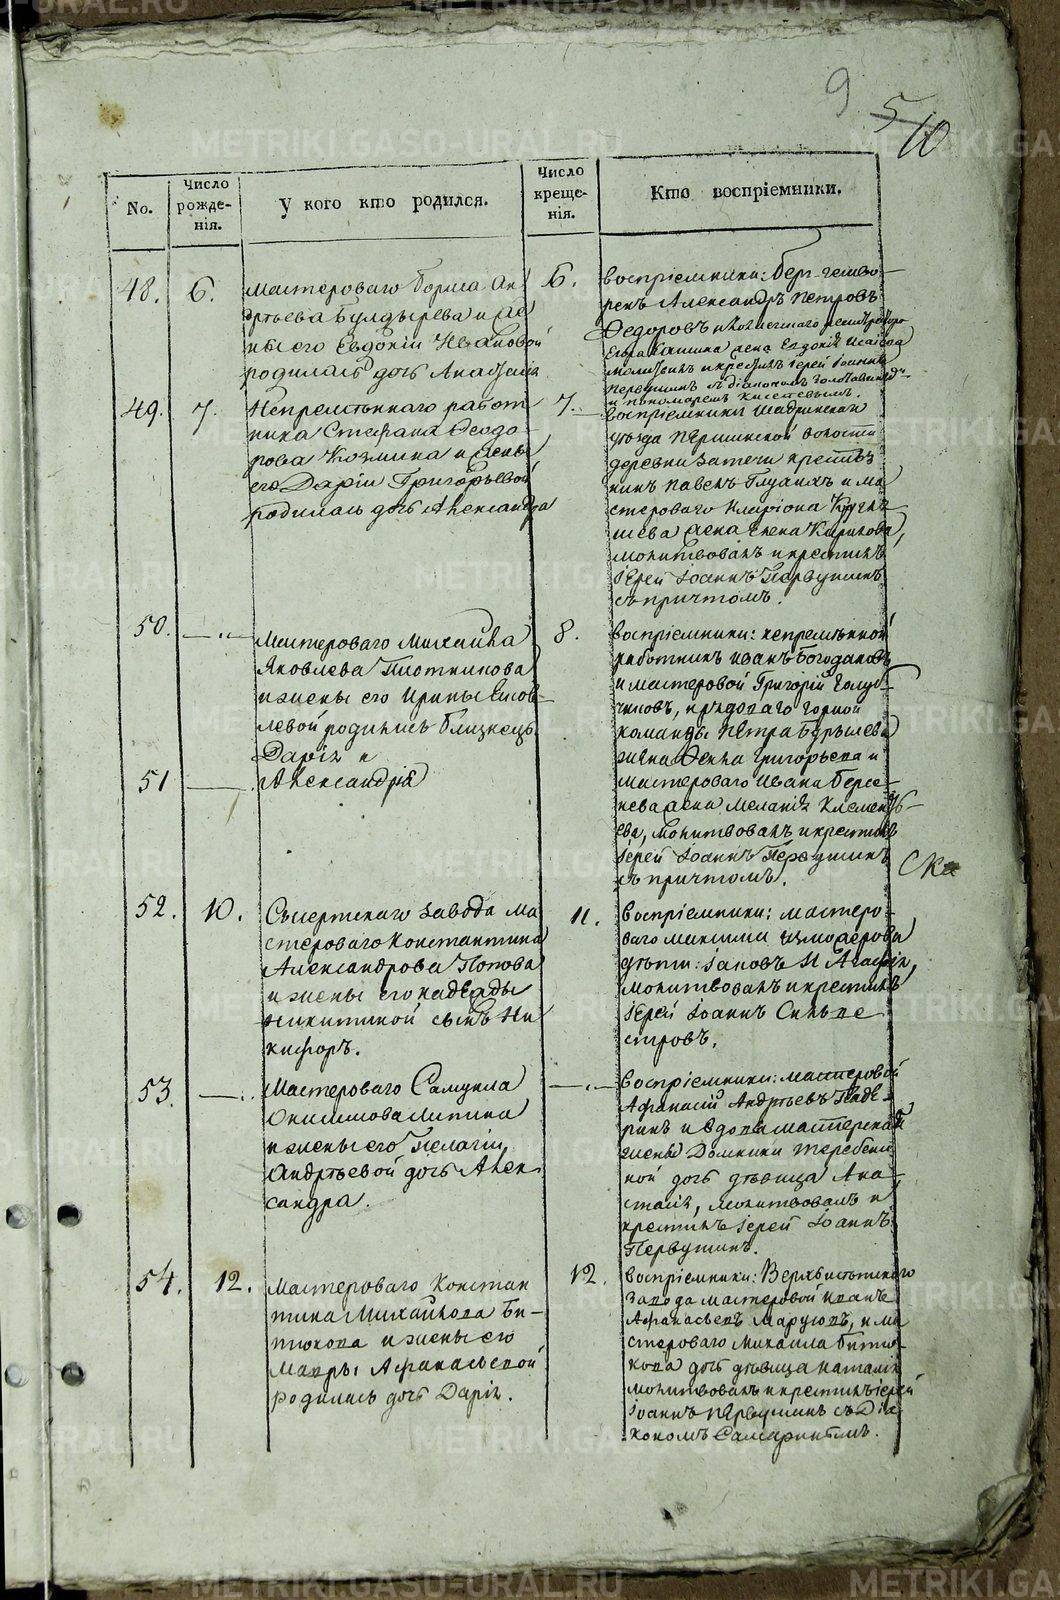 9
5
10
No.
Число рожде-
нія.
У кого кто родился.
Число креще-
нія.
Кто воспріемники.
48.
6.
Мастероваго Бориса Ан
дрѣева Булдырева и же
ны его Евдокіи Ивановой
родилась дочь Анастасія
6.
Воспріемники: Берг-гешво-
ренъ Александръ Петровъ
Федоровъ и
жена Евдокія Исаіева
молитвилъ и крестилъ Іерей Іоаннъ
Первушинъ съ діакономъ
и пономаремъ
49.
7.
Непремѣннаго работ
ника Стефана Феодо-
рова Козмина и жены
его Даріи Григорьевой
родилась дочь Александра
7.
Воспріемники Шадринскаго
уѣзда Першинской волости
деревни Затечи крестья
нинъ Павелъ Глухихъ и ма
стероваго Иларіона
жена Елена Кирилова,
молитвовалъ и крестилъ
Іерей Іоаннъ Первушинъ
съ причтомъ.
50.
—„—
Мастероваго Михаила
Яковлева Плотникова
и жены его Ирины Іаков-
левой родились близнецы
Дарія и
8.
Воспріемники: непремѣнной
работникъ Иванъ Богодановъ
и мастеровой Григорій Голуб-
чиковъ, рядоваго горной
команды Петра
жена Фекла Григорьева и
51
—
Александрія
мастероваго Ивана Бере-
нева жена Меланія Клементь-
ева, молитвовалъ и крестилъ
Іерей Іоаннъ Первушинъ
съ причтомъ.
52.
10.
Сысертскаго завода ма
стероваго Константина
Александрова Попова
и жены его Надежды
Никитиной сынъ Ни
кифоръ.
11.
Воспріемники: мастеро-
ваго Максима Измодерова
дѣти: Іаковъ и Агафія,
молитвовалъ и крестилъ
Іерей Іоаннъ Сильве
стровъ.
53.
—„—
Мастероваго Самуила
Онисимова Липина
и жены его Пелагіи
Андрѣевой дочь Алек-
сандра.
—„—
Воспріемники: мастеровой
Афанасій Андрѣевъ
и вдовы мастерской
жены Домники Теребени
ной дочь дѣвица Ана-
стасія, молитвовалъ и
крестилъ Іерей Іоаннъ
Первушинъ.
54.
12.
Мастероваго Констан
тина Михайлова Би-
тюкова и жены его
Мавры Афанасьевой
родилась дочь Дарія.
12.
Воспріемники: Верхъисетскаго
завода мастеровой Иванъ
Афанасьевъ и ма
стероваго Михаила Битю-
кова дочь дѣвица Наталія
молитвовалъ и крестилъ іерей
Іоаннъ Первушинъ съ Діа
кономъ
METRIKI.GASO-URAL.RU